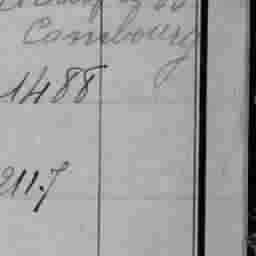 Cambourg
1488
211.7